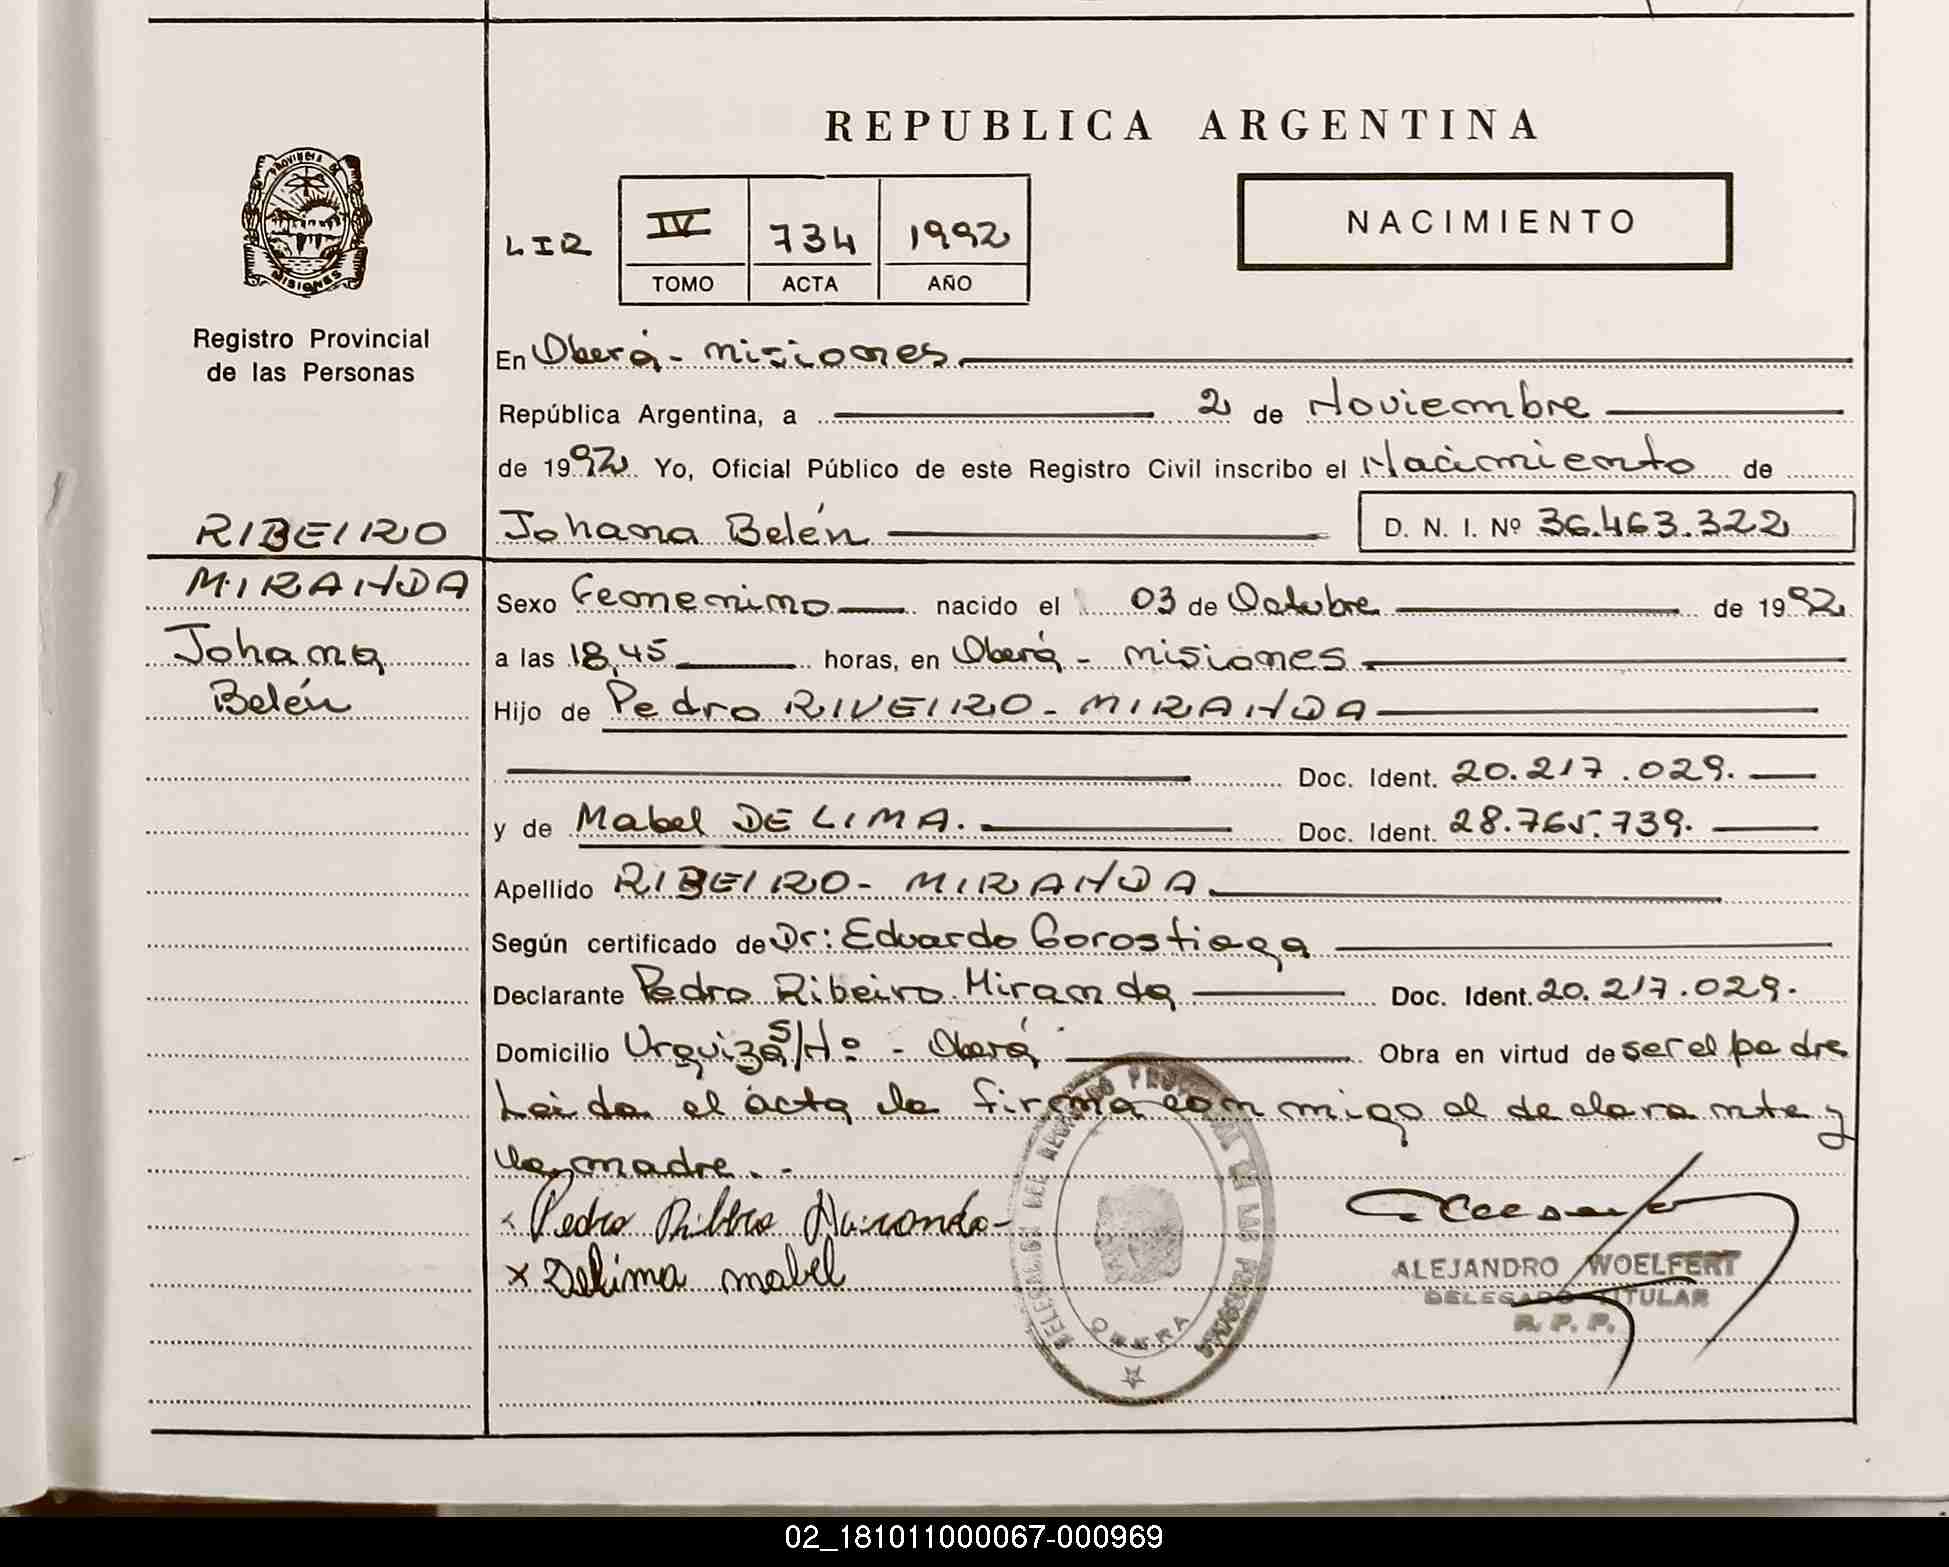 REPUBLICA ARGENTINA
PROVINCIA DE
MISIONES
Registro Provincial
de las Personas
LIR IV 734 1992
TOMO ACTA AÑO
NACIMIENTO
En Oberá - Misiones
República Argentina, a 2 de Noviembre
de 1992 Yo, Oficial Público de este Registro Civil inscribo el Nacimiento de
RIBEIRO
Johana Belén D. N. I. Nº 36.463.322
MIRANDA
Johana
Belén
Sexo Femenino nacido el 03 de Octubre de 1992
a las 18,45 horas, en Oberá - Misiones
Hijo de Pedro RIVEIRO - MIRANDA
Doc. Ident. 20.217.029.
y de Mabel DE LIMA. Doc. Ident. 28.765.739.
Apellido RIBEIRO - MIRANDA
Según certificado de Dr: Eduardo Gorostiaga
Declarante Pedro Ribeiro Miranda Doc. Ident. 20.217.029.
Domicilio Urquiza S/Nº - Oberá Obra en virtud de ser el padre
Leida el acta la firma conmigo el declarante y
la madre. -
x Pedro Miranda -
x Delima mabel
OBERA
ALEJANDRO WOELFERT
DELEGADO TITULAR
R. P. P.
02_181011000067-000969